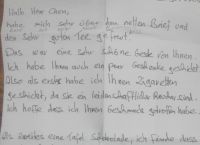 Hallo Herr Chen,
habe mich sehr über den netten Brief und
den sehr guten Tee gefreut.
Das war eine sehr schöne Geste von Ihnen.
Ich habe Ihnen auch ein paar Geschenke geschickt
Also als erste habe ich Ihnen Zigaretten
geschickt, da sie ein leidenschaftlicher Raucher sind.
ich hoffe dass ich Ihren Geschmack getroffen habe.
Als zweites eine Tafel Schokolade, ich fande dass